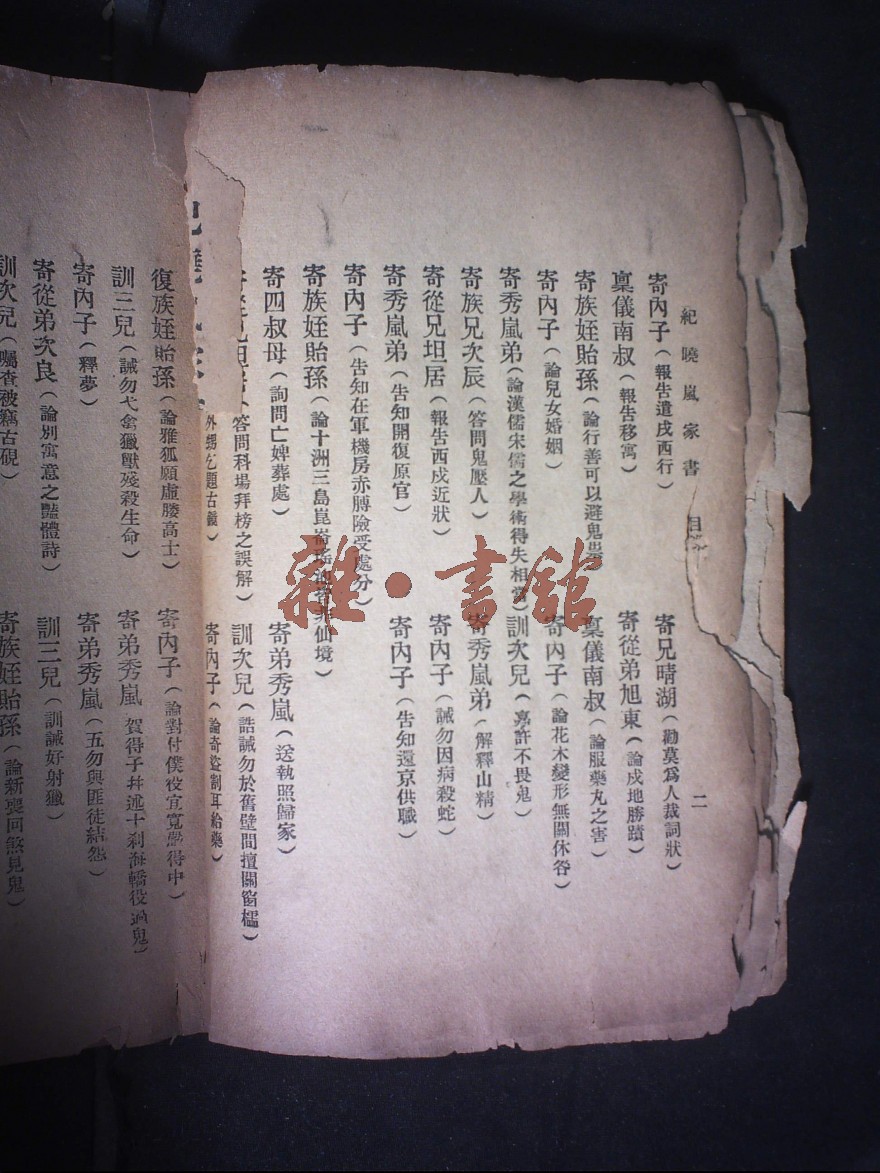 紀曉嵐家書 目 二
寄內子（報告遣戍西行） 寄兄晴湖（勸莫爲人裁詞狀）
稟儀南叔（報告移寓） 寄從弟旭東（論戍地勝蹟）
寄族姪貽孫（論行善可以避鬼祟） 稟儀南叔（論服藥丸之害）
寄內子（論兒女婚姻） 寄內子（論花木變形無關休咎）
寄秀嵐弟（論漢儒宋儒之學術得失相當） 訓次兒（嘉許不畏鬼）
寄族兄次辰（答問鬼壓人） 寄秀嵐弟（解釋山精）
寄從兄坦居（報告西戍近狀） 寄內子（誡勿因病殺蛇）
寄秀嵐弟（告知開復原官） 寄內子（告知還京供職）
寄內子（告知在軍機房赤膊險受處分）
寄族姪貽孫（論十洲三島崑崙瑤池皆非仙境）
寄四叔母（詢問亡婢葬處） 寄弟秀嵐（送執照歸家）
答問科場拜榜之誤解） 訓次兒（誥誡勿於舊壁間擅關窗櫺）
外甥乞題古 寄內子（論奇盜割耳給藥）
復族姪貽孫（論雅狐願虛媵高士） 寄內子（論對付僕役宜寬嚴得中）
訓三兒（誡勿弋禽獵獸殘殺生命） 寄弟秀嵐 賀得子幷述十剎海轎役過鬼）
寄內子（釋夢） 寄弟秀嵐（五勿與匪徒結怨）
寄從弟次良（論別寓意之豔體詩） 訓三兒（訓誡好射獵）
訓次兒（囑查被竊古硯） 寄族姪貽孫（論新喪回煞見鬼）
雜·書館